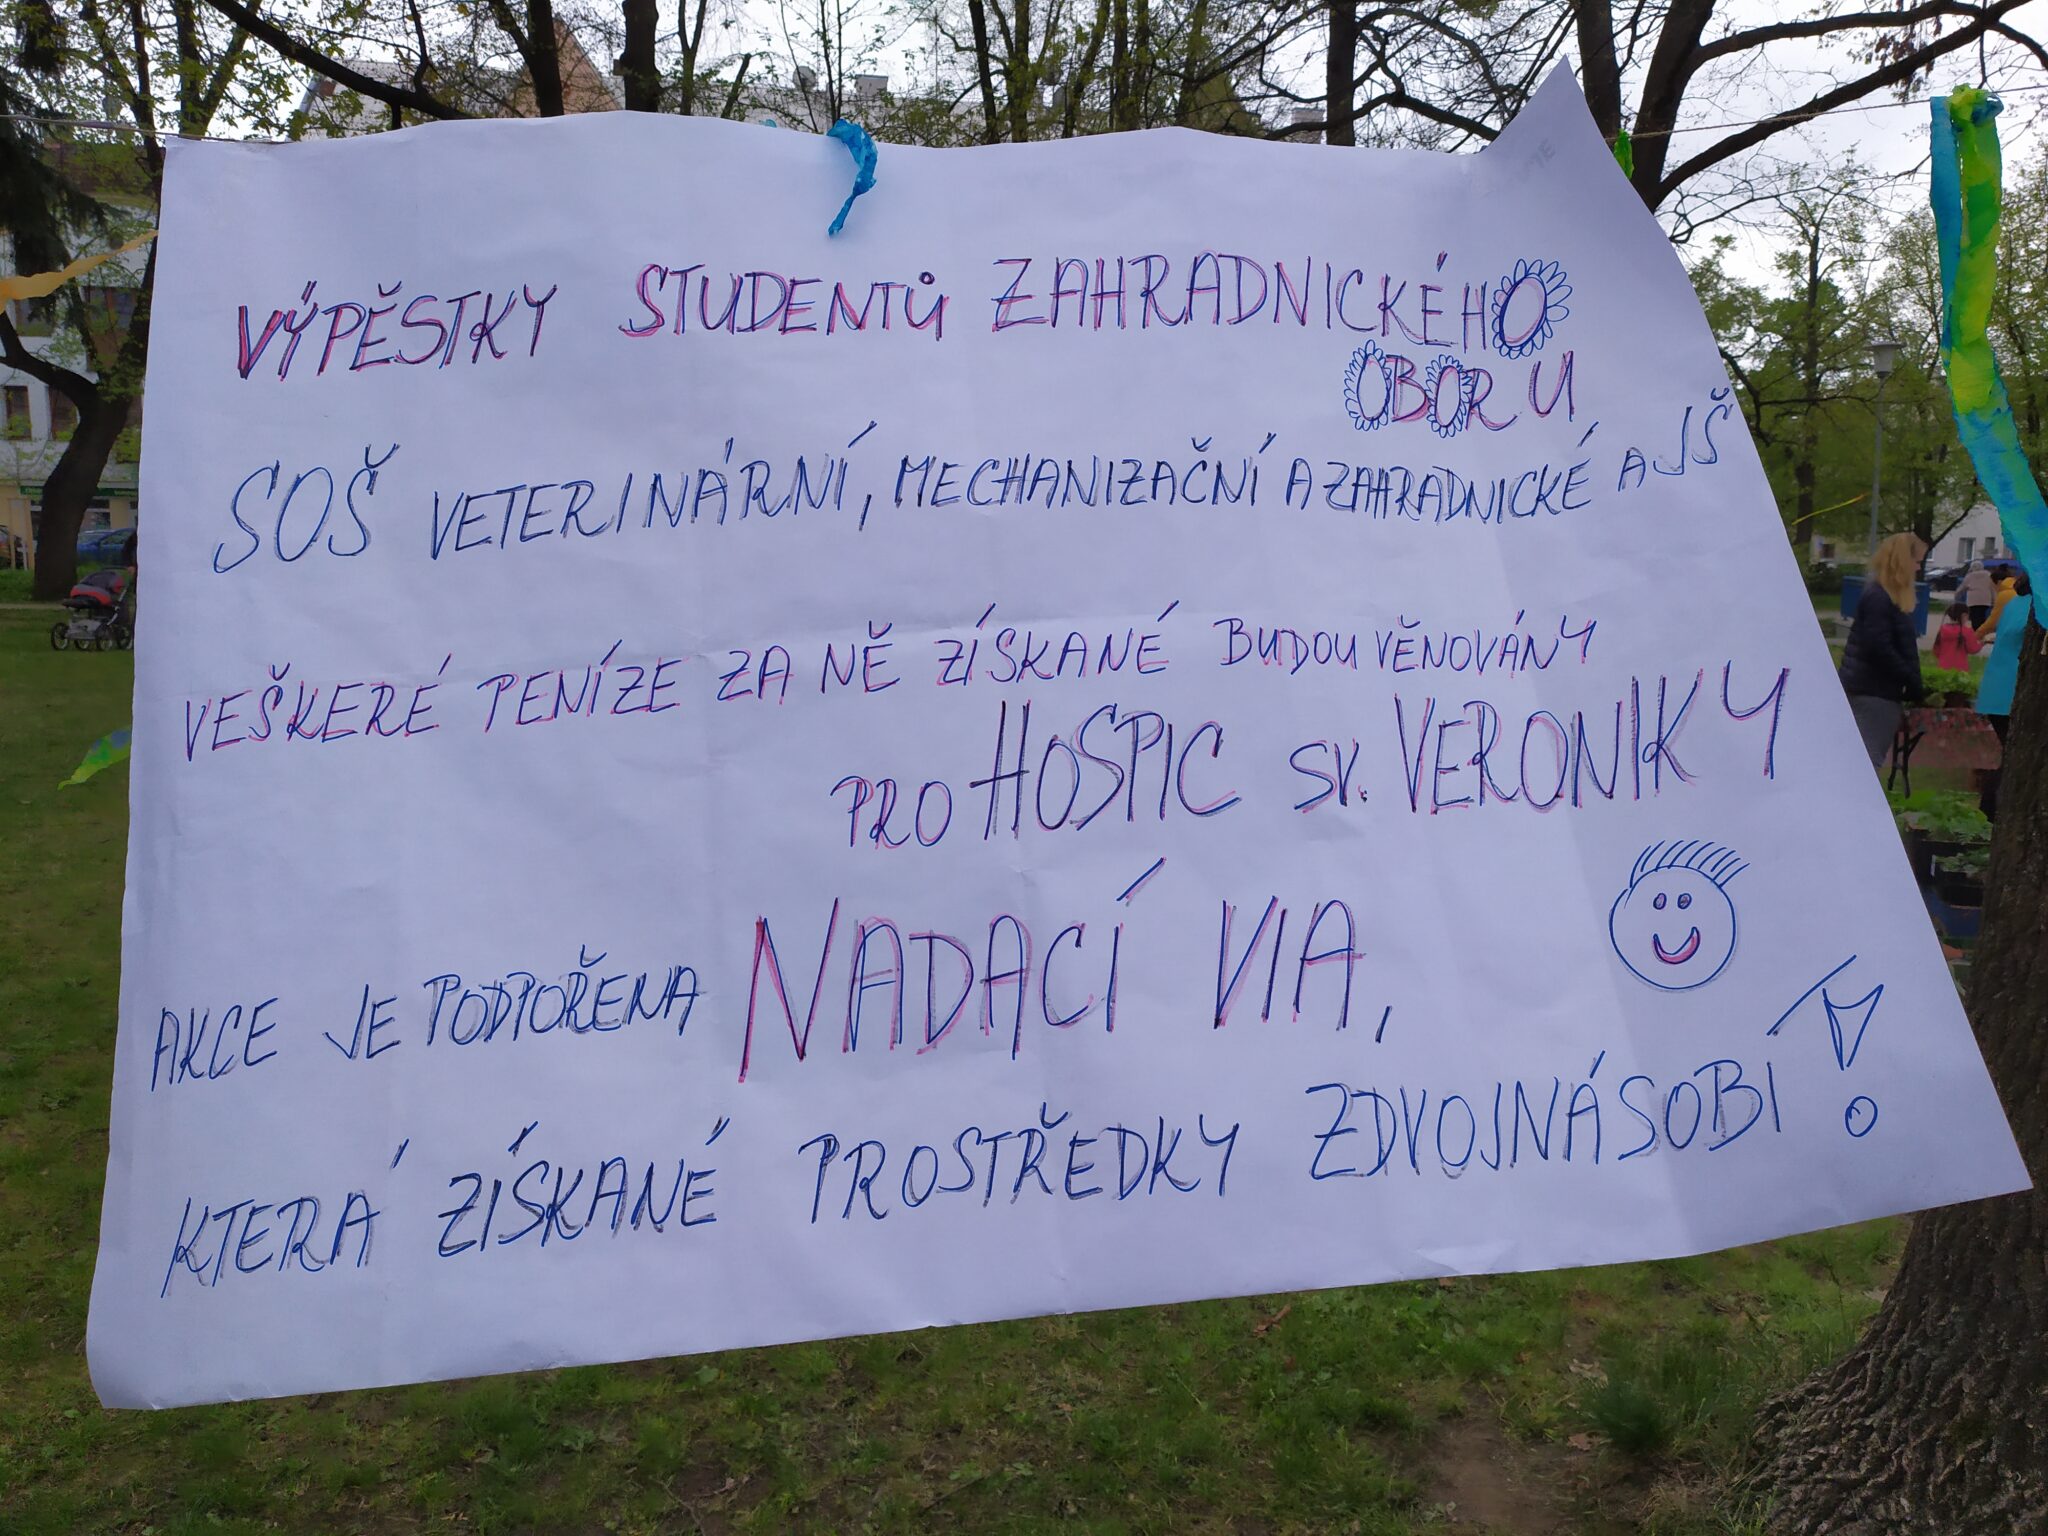 VÝPĚSTKY STUDENTŮ ZAHRADNICKÉHO
OBORU
SOŠ VETERINÁRNÍ, MECHANIZAČNÍ A ZAHRADNICKÉ A JŠ
VEŠKERÉ PENÍZE ZA NĚ ZÍSKANÉ BUDOU VĚNOVÁNY
PRO HOSPIC SV. VERONIKY
AKCE JE PODPOŘENA NADACÍ VIA,
KTERÁ ZÍSKANÉ PROSTŘEDKY ZDVOJNÁSOBÍ!